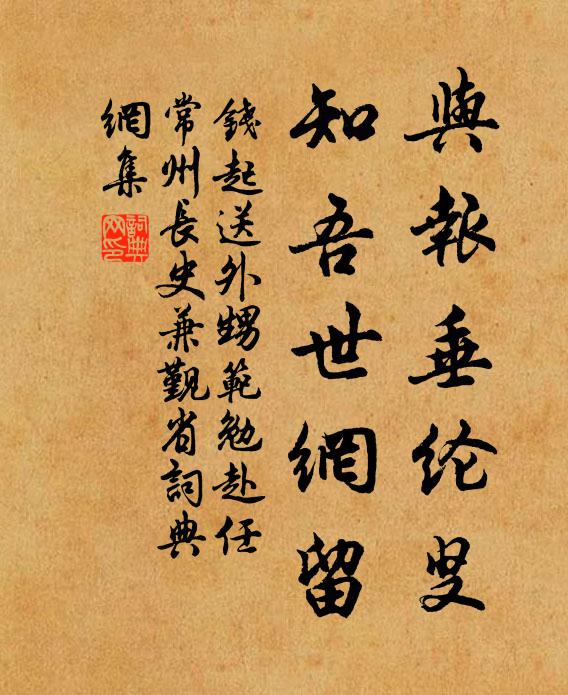 與報垂纶叟
知吾世網留
錢起送外甥範勉赴任
常州長史兼覲省詞典
網集
詞典网印